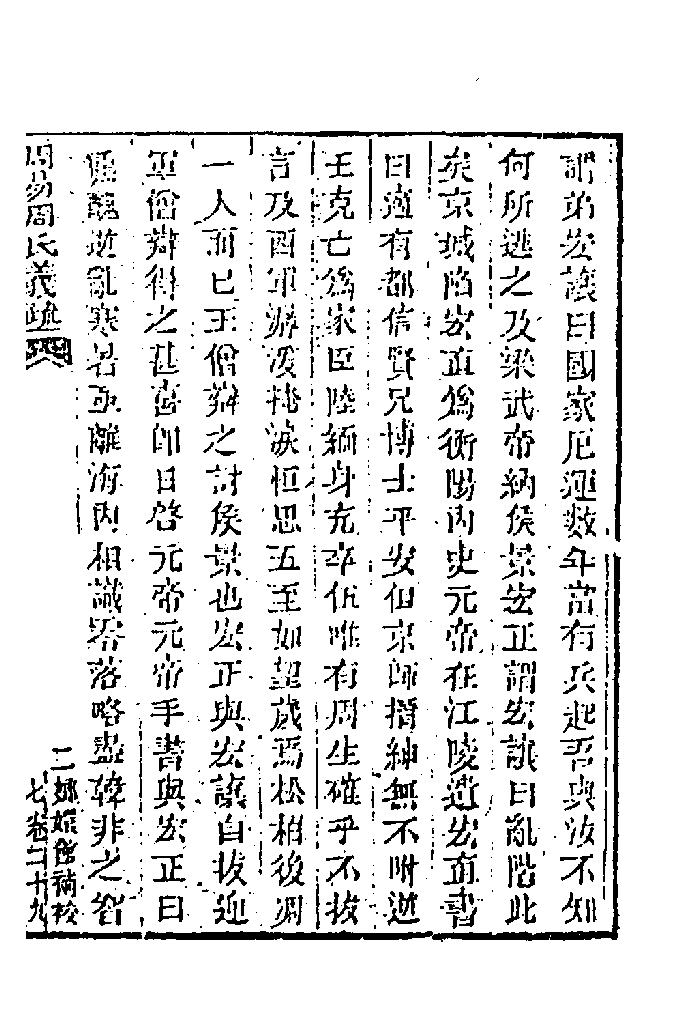 謂弟宏讓曰國家厄運數年當有兵起吾與汝不知
何所逃之及梁武帝納侯景宏正謂宏讓曰亂階此
矣京城陷宏直爲衡陽內史元帝在江陵遺宏直書
曰適有都信賢兄博士平安但京師搢紳無不附逆
王克已爲家臣陸緬身充卒伍唯有周生確乎不拔
言及西軍潺湲掩淚恒思吾至如望歲焉松柏後凋
一人而已王僧辯之討侯景也宏正與宏讓自拔迎
軍僧辯得之甚喜卽日啓元帝元帝手書與宏正曰
獯醜逆亂寒暑亟離海內相識零落略盡韓非之智
周易周氏義疏
二 嫏嬛館補校
七 卷二十九